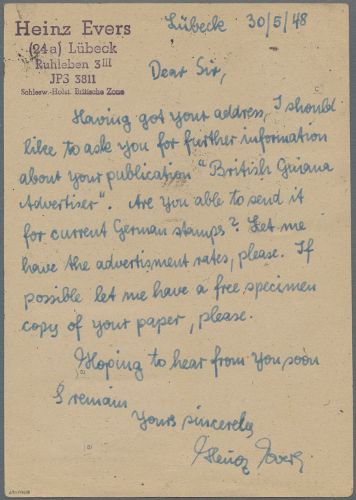 Heinz Evers
(24a) Lübeck
Ruhleben 3III
JPS 3811
Schlesw.-Holst. Britische Zone
Lübeck 30/5/48
Dear Sir,
Having got your address, I should
like to ask you for further information
about your publication "British Guiana
Advertiser". Are you able to send it
for current German stamps? Let me
have the advertisment rates, please. If
possible let me have a free specimen
copy of your paper, please.
Hoping to hear from you soon
I remain
Yours sincerely
Heinz Evers